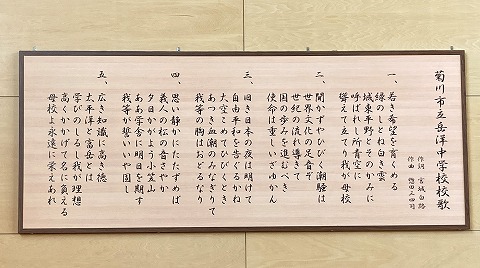 菊川市立岳洋中学校校歌
作詞 宮城白路
作曲
一、
若き希望を育くめる
緑のしとね白き雲
城東平野とそのかみに
呼ばれし所青空に
聳えて立てり我が母校
二、
聞かずやひびく潮騒は
世界文化の足音ぞ
世紀の流れ導きて
国の歩みを進むべき
使命は重しいざゆかん
三、
旧き日本の夜は明けて
自由平和を告ぐるかね
大空こめてひびくとき
あつき血潮のみなぎりて
我等の胸はおどるなり
四、
思い静かにたたずめば
義人の松の音さやか
夕日かがよう小笠山
ああ学舎に明日を期す
我等が誓いいや固し
五、
広き知識に高き徳
太平洋と富岳とは
学びのしるし我が理想
高くかかげて名に負える
母校よ永遠に栄えあれ